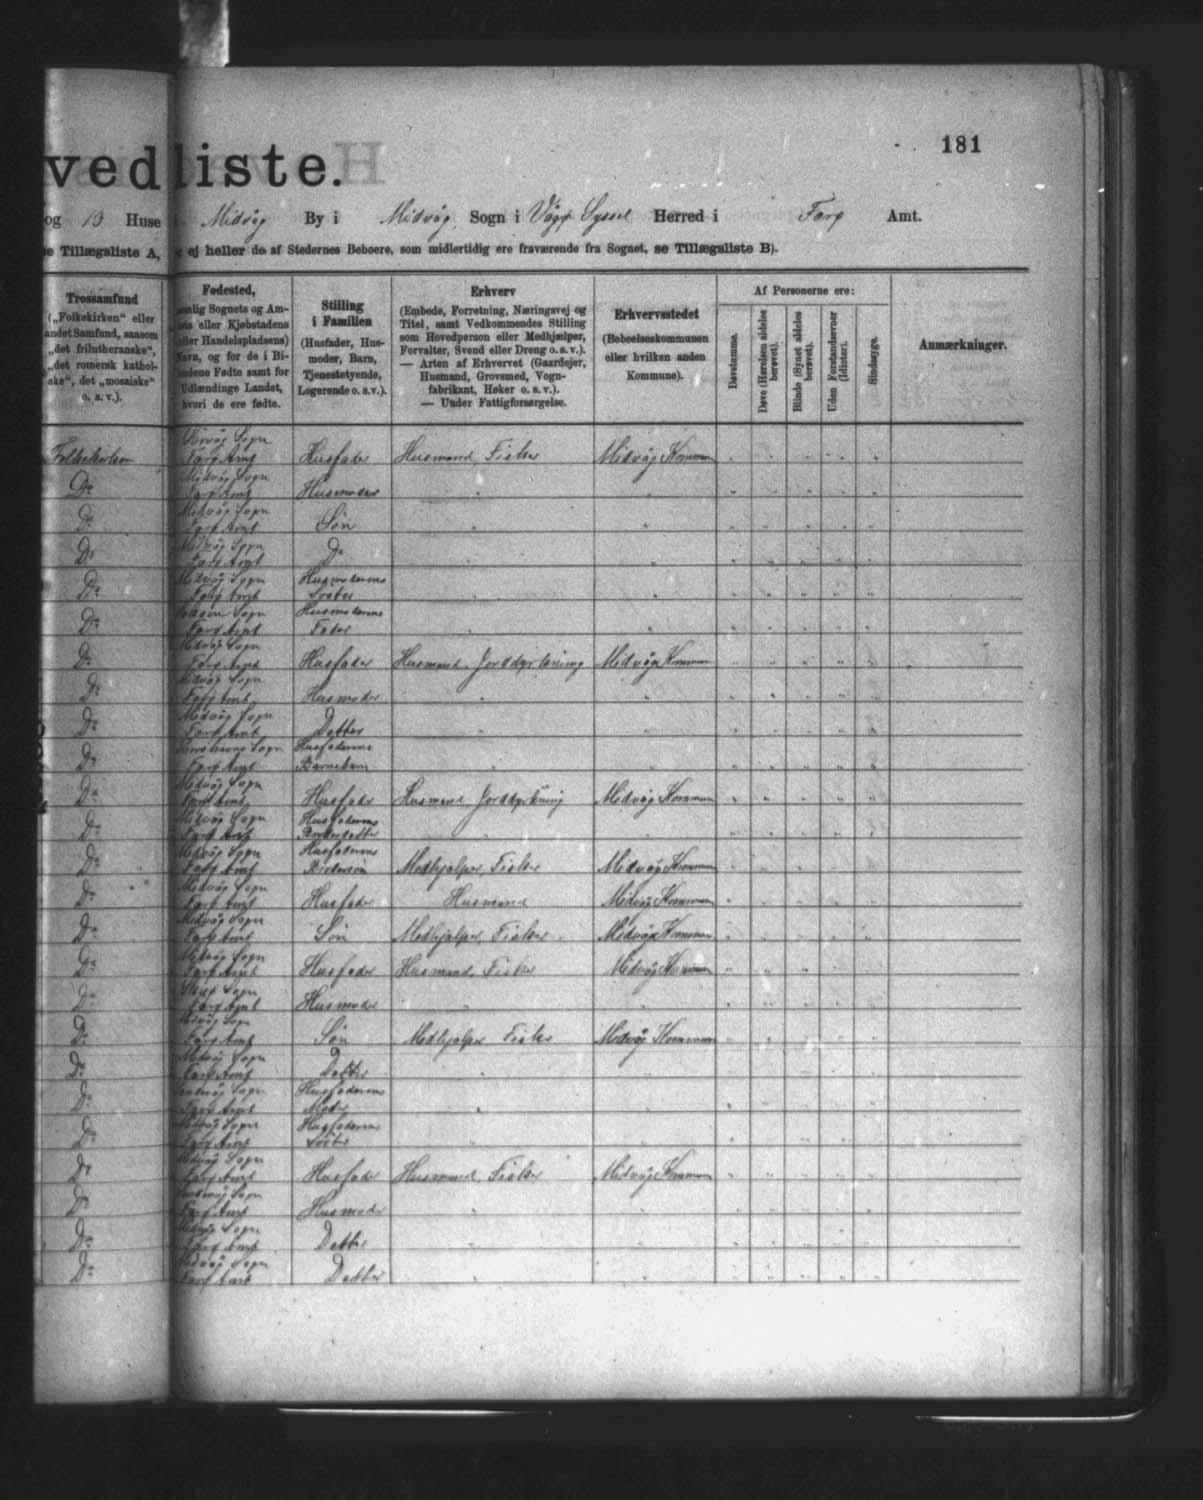 181
vedliste.
og 13 Huse i Midvåg By i Midvåg Sogn i Vågø Syssel Herred i Farø Amt.
se Tillægsliste A, ej heller de af Stedernes Beboere, som midlertidig ere fraværende fra Sognet, se Tillægsliste B).
Trossamfund
(„Folkekirken“ eller
andet Samfund, saasom
„det frilutheranske“,
„det romersk kathol-
ske“, det „mosaiske“
o. s. v.).
Fødested,
nemlig Sognets og Am-
eller Kjøbstadens
eller Handelspladsens)
Navn, og for de i Bi-
landene Fødte samt for
Udlændinge Landet,
hvori de ere fødte.
Stilling
i Familien
(Husfader, Hus-
moder, Barn,
Tjenestetyende,
Logerende o. s. v.).
Erhverv
(Embede, Forretning, Næringsvej og
Titel, samt Vedkommendes Stilling
som Hovedperson eller Medhjælper,
Forvalter, Svend eller Dreng o. s. v.).
— Arten af Erhvervet (Gaardejer,
Husmand, Grovsmed, Vogn-
fabrikant, Høker o. s. v.).
— Under Fattigforsørgelse.
Erhvervsstedet
(Beboelseskommunen
eller hvilken anden
Kommune).
Af Personerne ere:
Døvstumme.
Døve (Hørelsen aldeles
berøvet).
Blinde (Synet aldeles
berøvet).
Uden Forstandsevner
(Idioter).
Sindssyge.
Anmærkninger.
Folkekirken Sogn Farø Amt Husfader Husmand, Fisker Midvåg Kommun
Do Midvåg Sogn Farø Amt Husmoder
Do Midvåg Sogn Farø Amt Søn
Do Midvåg Sogn Farø Amt Do
Do Midvåg Sogn Farø Amt Husmoderens Søster
Do Sogn Farø Amt Husmoderens Fader
Do Midvåg Sogn Farø Amt Husfader Husmand, Jorddyrkning Midvåg Kommun
Do Midvåg Sogn Farø Amt Husmoder
Do Midvåg Sogn Farø Amt Datter
Do Sogn Farø Amt Husfaderens Barnebarn
Do Midvåg Sogn Farø Amt Husfader Husmand Jorddyrkning Midvåg Kommun
Do Midvåg Sogn Farø Amt Husfaderens Broderdatter
Do Midvåg Sogn Farø Amt Husfaderens Brodersøn Medhjælper, Fisker Midvåg Kommun
Do Midvåg Sogn Farø Amt Husfader Husmand Midvåg Kommun
Do Midvåg Sogn Farø Amt Søn Medhjælper, Fisker Midvåg Kommun
Do Midvåg Sogn Farø Amt Husfader Husmand, Fisker Midvåg Kommun
Do Sogn Farø Amt Husmoder
Do Midvåg Sogn Farø Amt Søn Medhjælper Fisker Midvåg Kommun
Do Midvåg Sogn Farø Amt Datter
Do Sogn Farø Amt Husfaderens Moder
Do Midvåg Sogn Farø Amt Husfaderens Søster
Do Midvåg Sogn Farø Amt Husfader Husmand, Fisker Midvåg Kommun
Do Sogn Farø Amt Husmoder
Do Midvåg Sogn Farø Amt Datter
Do Midvåg Sogn Farø Amt Datter